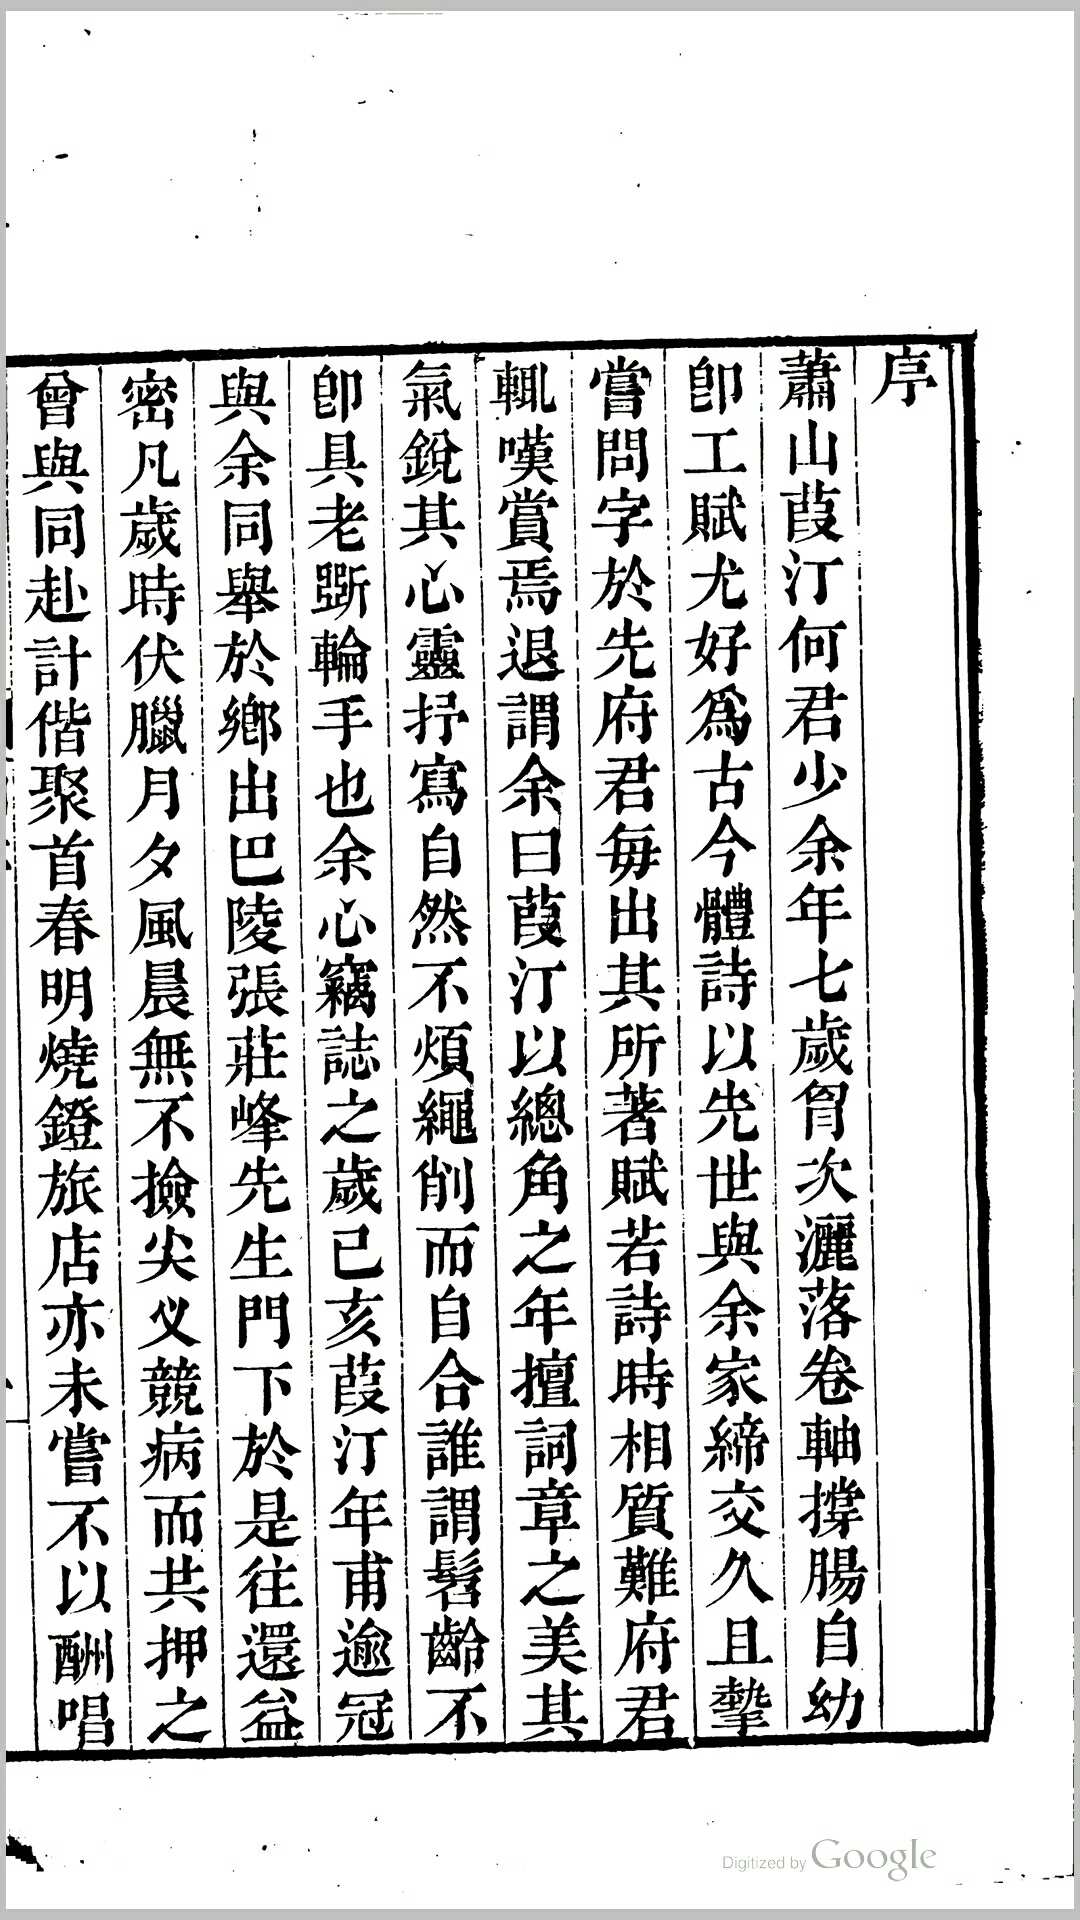 序
蕭山葭汀何君少余年七歲胷次灑落卷軸撐腸自幼
卽工賦尤好爲古今體詩以先世與余家締交久且摯
嘗問字於先府君每出其所著賦若詩時相質難府君
輒嘆賞焉退謂余曰葭汀以總角之年擅詞章之美其
氣銳其心靈抒寫自然不煩繩削而自合誰謂髫齡不
卽具老斲輪手也余心竊誌之歲己亥葭汀年甫逾冠
與余同舉於鄉出巴陵張莊峰先生門下於是往還益
密凡歲時伏臘月夕風晨無不撿尖义競病而共押之
曾與同赴計偕聚首春明燒鐙旅店亦未嘗不以酬唱
Digitized by Google